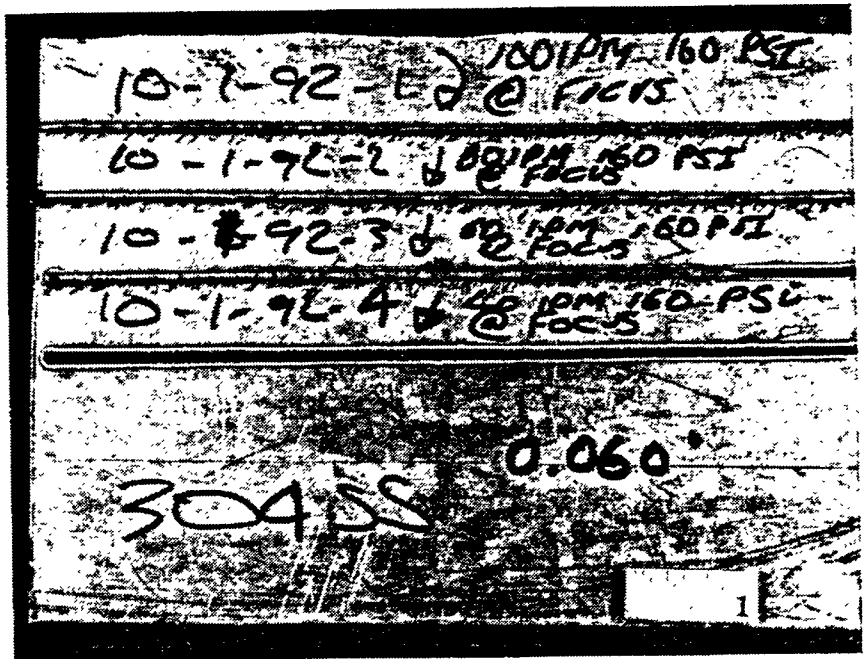 10-1-92-1 ↓ 100 IPM 160 PSI
@ FOCUS
10-1-92-2 ↓ 80 IPM 160 PSI
@ FOCUS
10-1-92-3 ↓ 60 IPM 160 PSI
@ FOCUS
10-1-92-4 ↓ 40 IPM 160 PSI
@ FOCUS
0.060"
304 SS
1